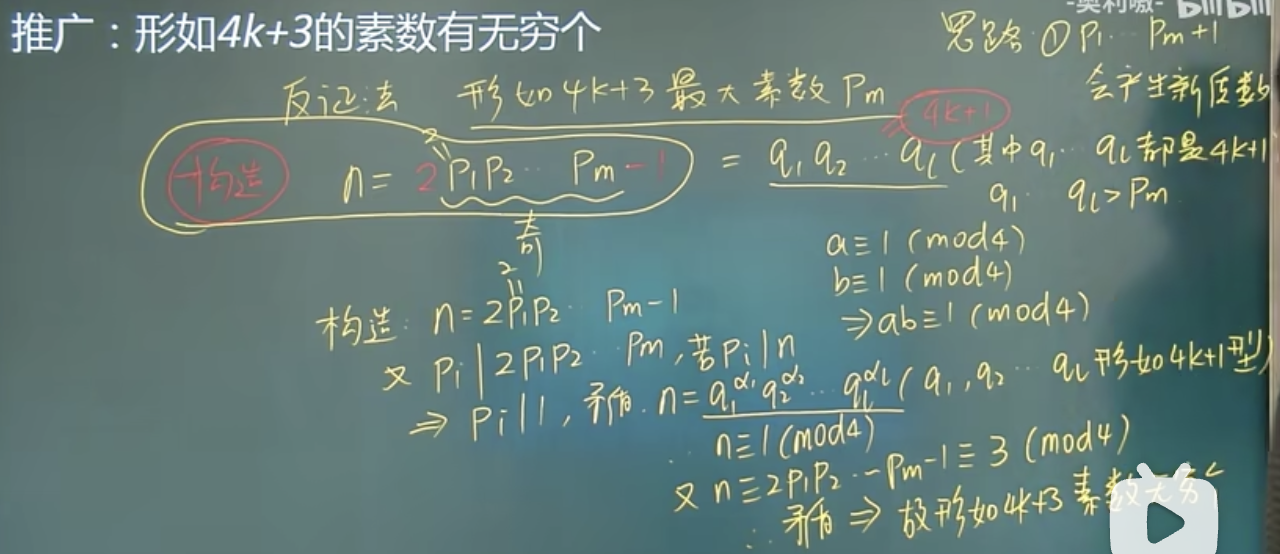 -奥利嗷- bilibili
推广：形如4k+3的素数有无穷个
思路 ① P₁ ⋯ Pm+1
会产生新质数
反证法 形如4k+3最大素数Pm
4k+1
构造 n = 2P₁P₂ ⋯ Pm -1 = q₁ q₂ ⋯ ql (其中q₁ ⋯ ql都是4k+1
q₁ ql > Pm
奇
a≡1 (mod4)
b≡1 (mod4)
⇒ ab≡1 (mod4)
2
构造: n = 2P₁P₂ ⋯ Pm-1
又 Pi | 2P₁P₂ ⋯ Pm, 若Pi|n
⇒ Pi|1, 矛盾. n = q₁^α₁ q₂^α₂ ⋯ ql^αl (q₁, q₂ ⋯ ql 形如4k+1型)
∴ n≡1 (mod4)
又 n≡2P₁P₂ ⋯ Pm-1≡3 (mod4)
∴ 矛盾 ⇒ 故形如4k+3素数无穷个